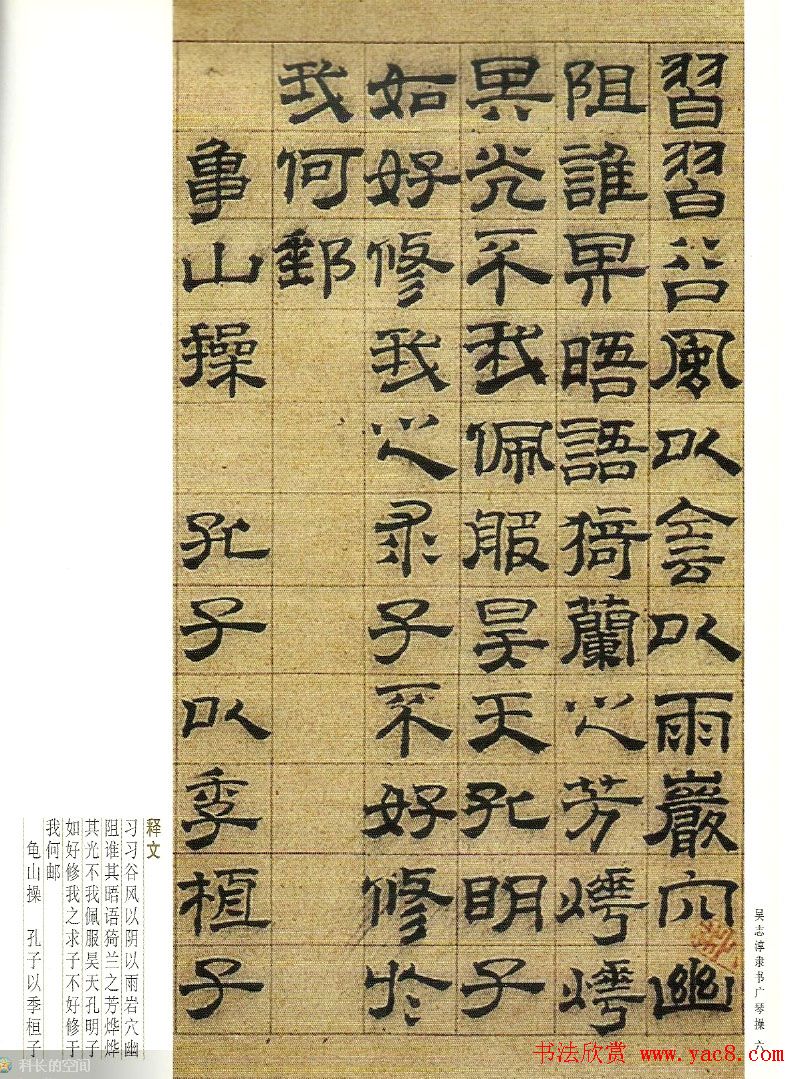 習習谷風以侌以雨巖穴幽
阻誰其晤語猗蘭之芳燁燁
其光不我佩服昊天孔明子
如好修我之求子不好修於
我何郵
龜山操 孔子以季桓子
吴志淳隶书广琴操 六
释文
习习谷风以阴以雨岩穴幽
阻谁其晤语猗兰之芳烨烨
其光不我佩服昊天孔明子
如好修我之求子不好修于
我何邮
龟山操 孔子以季桓子
书法欣赏 www.yac8.com
科长的空间